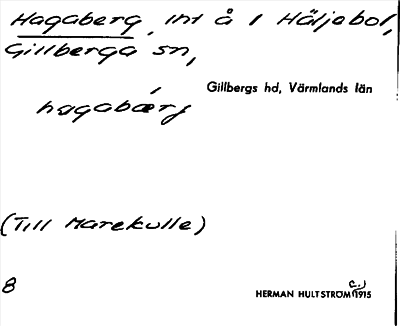 Hagaberg, int å 1 Häljebol,
Gillberga sn,
Gillbergs hd, Värmlands län
hagabærj
(Till Marekulle)
8
HERMAN HULTSTRÖM c. 1915